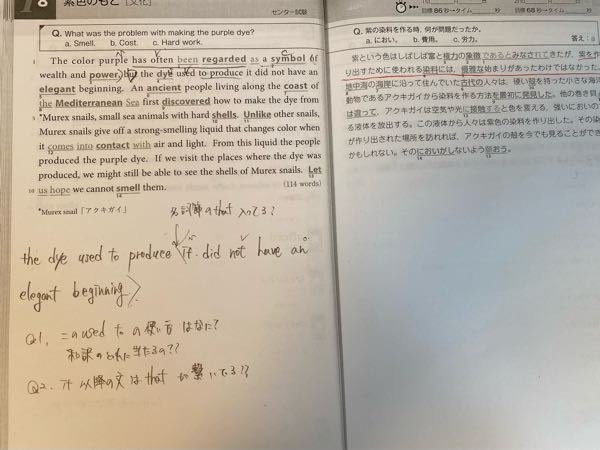 8 紫色のもと [文化]
センター試験
Q. What was the problem with making the purple dye?
a. Smell. b. Cost. c. Hard work.
1 The color purple has often been regarded as a symbol of
wealth and power, but the dye used to produce it did not have an
elegant beginning. An ancient people living along the coast of
the Mediterranean Sea first discovered how to make the dye from
5 *Murex snails, small sea animals with hard shells. Unlike other snails,
Murex snails give off a strong-smelling liquid that changes color when
it comes into contact with air and light. From this liquid the people
produced the purple dye. If we visit the places where the dye was
produced, we might still be able to see the shells of Murex snails. Let
10 us hope we cannot smell them. (114 words)
*Murex snail「アクキガイ」
名詞節のthat 入ってる?
the dye used to produce it did not have an
elegant beginning
Q1, このused to の使い方はなに?
和訳のどれに当たるの??
Q2. it 以降の文はthat が繋いでる??
目標 86秒→タイム 秒
Q. 紫の染料を作る時、何が問題だったか。
a. におい。 b. 費用。 c. 労力。
答え:a
紫という色はしばしば富と権力の象徴であるとみなされてきたが、紫を作
り出すために使われる染料には、優雅な始まりがあったわけではなかった。
地中海の海岸に沿って住んでいた古代の人々は、硬い殻を持った小さな海洋
動物であるアクキガイから染料を作る方法を最初に発見した。他の巻き貝と
は違って、アクキガイは空気や光に接触すると色を変える、強いにおいのす
る液体を放出する。この液体から人々は紫色の染料を作り出した。その染料
が作り出された場所を訪れれば、アクキガイの殻を今でも見ることができる
かもしれない。そのにおいがしないよう祈ろう。